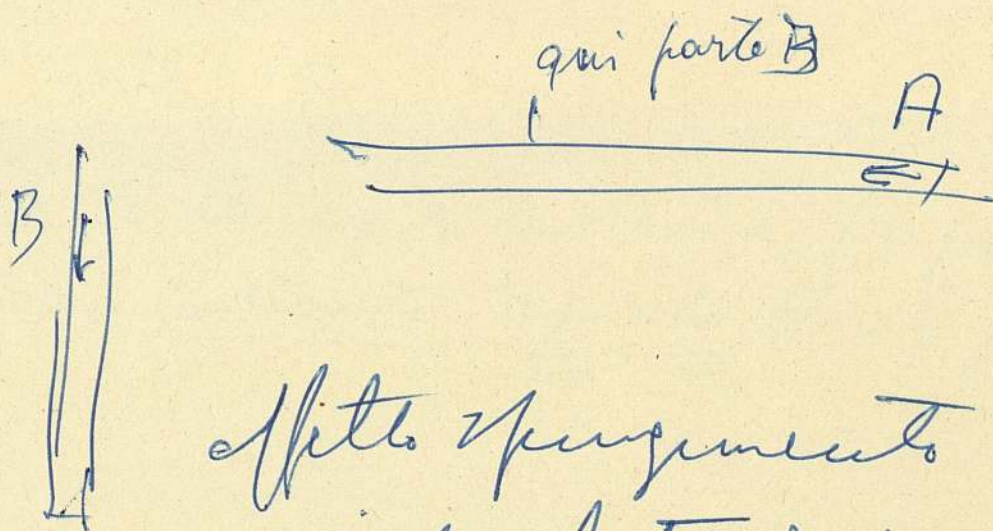 qui parte B
A
B
effetto spungimento